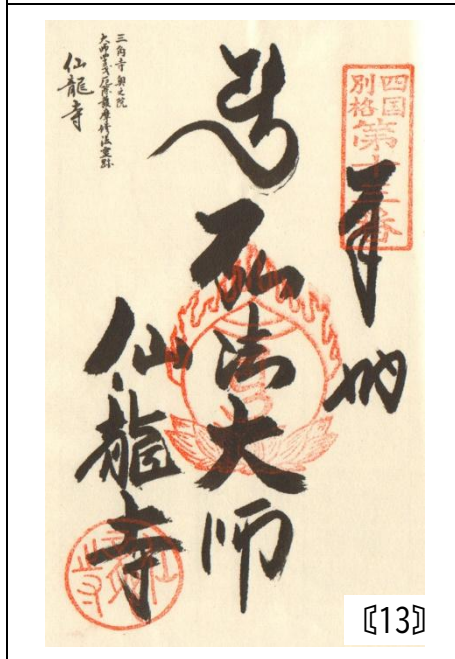 四国
別格
第十三番
奉納
弘法大師
仙龍寺
三角寺奥之院
仙龍寺
〖13〗